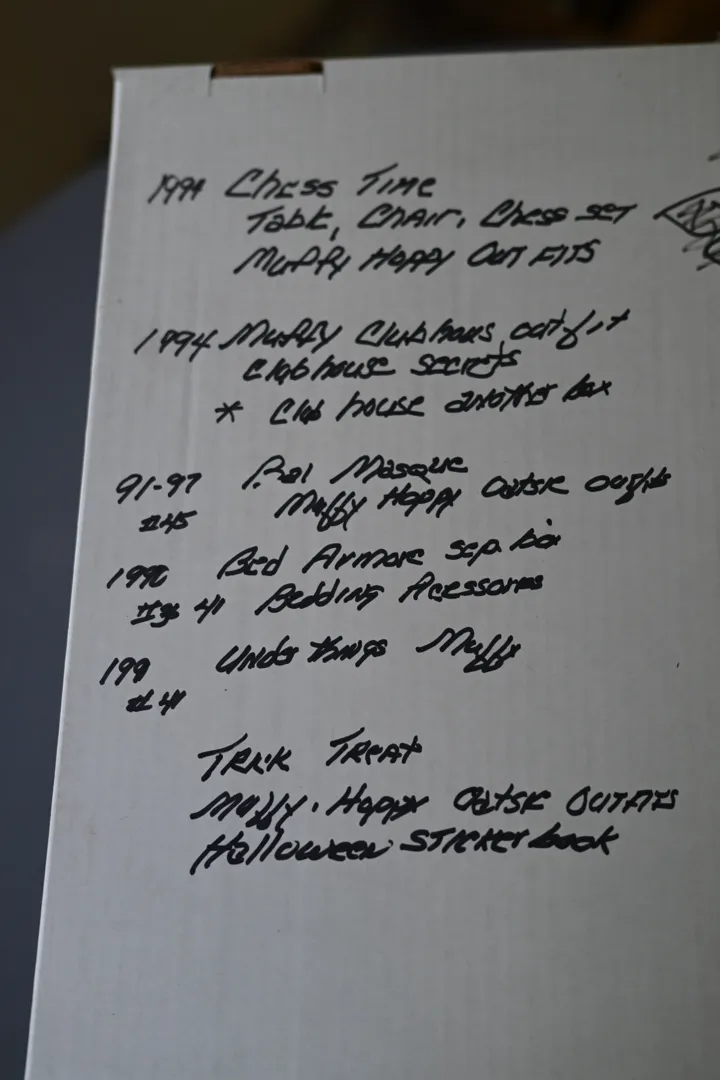 1994 Chess Time
Table, Chair, Chess set
Muffy Hoppy Outfits
1994 Muffy Clubhous outfit
Clubhouse secrets
* Club house another box
91-97 Bal Masque
#45 Muffy Hoppy Oatsie outfits
1990 Bed Armore sep. box
41 Bedding Acessories
199 Under things Muffy
#41
Trick Treat
Muffy. Hoppy Oatsie Outfits
Halloween Sticker book